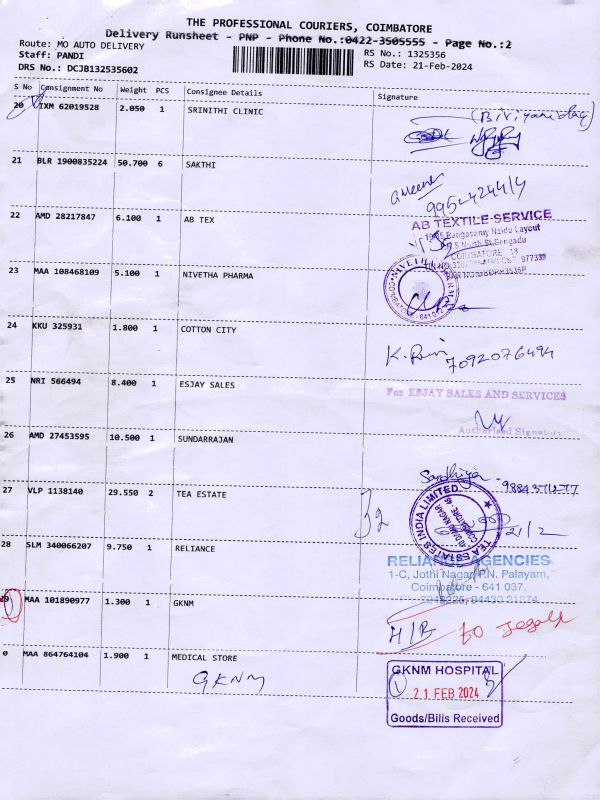 THE PROFESSIONAL COURIERS, COIMBATORE
Delivery Runsheet - PNP - Phone No.:0422-3505555 - Page No.:2
Route: MO AUTO DELIVERY
RS No.: 1325356
Staff: PANDI
RS Date: 21-Feb-2024
DRS No.: DCJB132535602
S No Consignment No Weight PCS Consignee Details Signature
20 IXM 62019528 2.050 1 SRINITHI CLINIC
21 BLR 1900835224 50.700 6 SAKTHI
22 AMD 28217847 6.100 1 AB TEX
AB TEXTILE SERVICE
COIMBATORE
23 MAA 108468109 5.100 1 NIVETHA PHARMA
24 KKU 325931 1.800 1 COTTON CITY
7092076494
25 NRI 566494 8.400 1 ESJAY SALES
For ESJAY SALES AND SERVICES
Authorised Signatory
26 AMD 27453595 10.500 1 SUNDARRAJAN
Sandhiya
27 VLP 1138140 29.550 2 TEA ESTATE
32
TEA ESTATES INDIA LIMITED
21/2
28 SLM 340066207 9.750 1 RELIANCE
RELIANCE AGENCIES
1-C, Jothi Nagar, P.N. Palayam,
Coimbatore - 641 037.
29 MAA 101890977 1.300 1 GKNM
H/B to
0 MAA 864764104 1.900 1 MEDICAL STORE
GKNM
GKNM HOSPITAL
1 21 FEB 2024
Goods/Bills Received